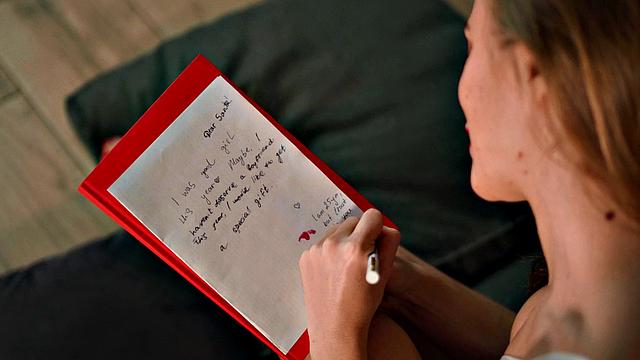 Dear Santa!
I was good girl
this year Maybe, I
haven't deserve a boyfriend
this year, I would like to get
a special gift.
I am 25 y.o
but I